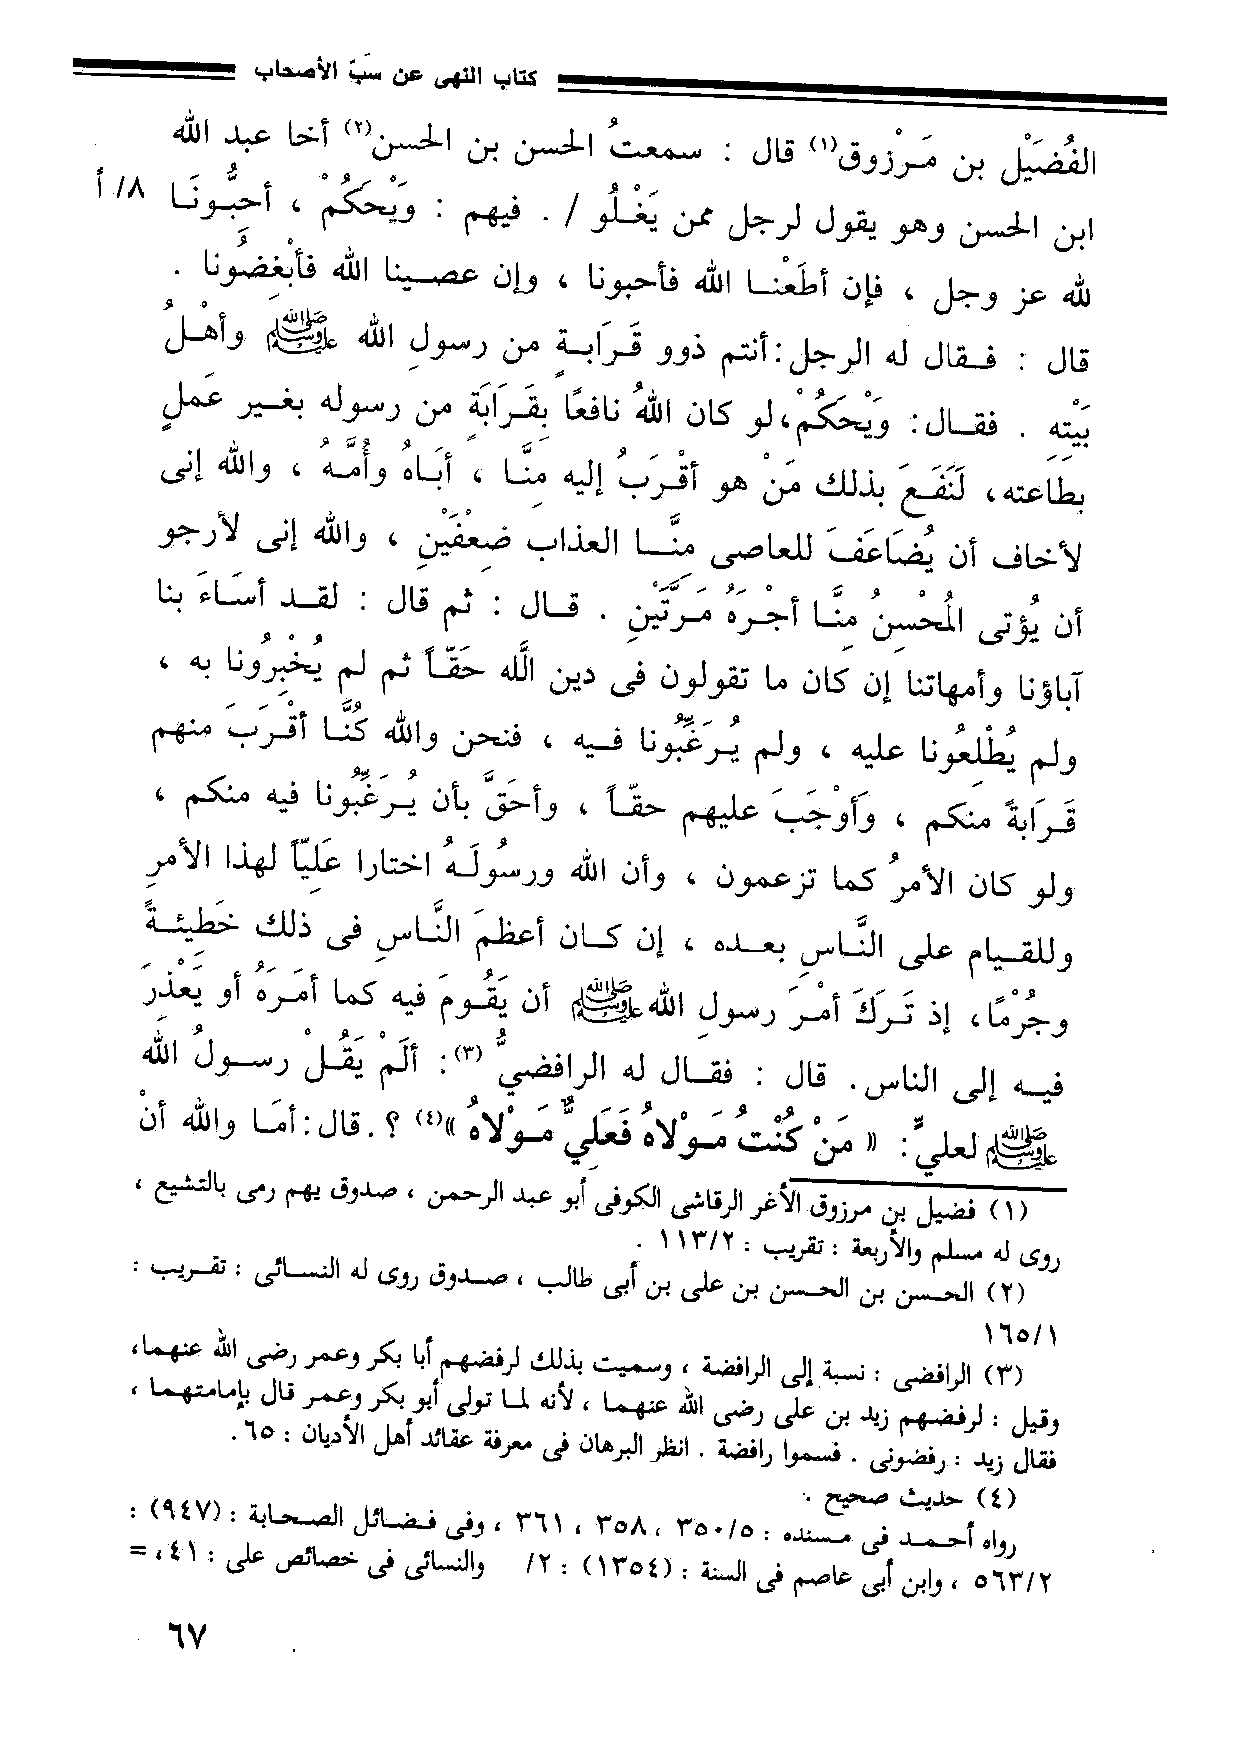 كتاب النهى عن سَبّ الأصحاب
الفُضَيْل بن مَرْزوق(١) قال : سمعتُ الحسن بن الحسن(٢) أخا عبد الله
ابن الحسن وهو يقول لرجل ممن يَغْلُو / . فيهم : وَيْحَكُمْ ، أحِبُّونَا ٨/ أ
لله عز وجل ، فإن أطَعْنا الله فأحبونا ، وإن عصينا الله فأبْغِضُونا .
قال : فقال له الرجل : أنتم ذوو قَرَابةٍ من رسولِ الله ﷺ وأهْلُ
بَيْتِهِ . فقال : وَيْحَكُمْ ، لو كان اللهُ نافعًا بِقَرَابَةٍ من رسوله بغير عَملٍ
بِطَاعته ، لَنَفَعَ بذلك مَنْ هو أقْرَبُ إليه مِنَّا ، أبَاهُ وأُمَّهُ ، والله إنى
لأخاف أن يُضَاعَفَ للعاصى مِنَّا العذاب ضِعفَيْنِ ، والله إنى لأرجو
أن يُؤتى المُحْسِنُ مِنَّا أجْرَهُ مَرَّتَيْنِ . قال : ثم قال : لقد أسَاءَ بنا
آباؤنا وأمهاتنا إن كان ما تقولون فى دين الله حَقّاً ثم لم يُخْبِرُونا به ،
ولم يُطْلِعُونا عليه ، ولم يُرَغِّبُونا فيه ، فنحن والله كُنَّا أقْرَبَ منهم
قَرَابةً منكم ، وَأَوْجَبَ عليهم حقّاً ، وأحَقَّ بأن يُرَغِّبُونا فيه منكم ،
ولو كان الأمرُ كما تزعمون ، وأن الله ورسُولَهُ اختارا عَلِيّاً لهذا الأمرِ
وللقيام على النَّاسِ بعده ، إن كان أعظمَ النَّاسِ فى ذلك خَطِيئةً
وجُرْمًا ، إذ تَرَكَ أمْرَ رسولِ الله ﷺ أن يَقُومَ فيه كما أمَرَهُ أو يَعْذِرَ
فيه إلى الناس . قال : فقال له الرافضيُّ(٣) : ألَمْ يَقُلْ رسولُ الله
ﷺ لعليٍّ : « مَنْ كُنْتُ مَوْلاهُ فَعَلِيٌّ مَوْلاهُ »(٤) ؟ . قال : أمَا والله أنْ
(١) فضيل بن مرزوق الأغر الرقاشى الكوفى أبو عبد الرحمن ، صدوق يهم رمى بالتشيع ،
روى له مسلم والأربعة : تقريب : ١١٣/٢ .
(٢) الحسن بن الحسن بن على بن أبى طالب ، صدوق روى له النسائى : تقريب :
١٦٥/١
(٣) الرافضى : نسبة إلى الرافضة ، وسميت بذلك لرفضهم أبا بكر وعمر رضى الله عنهما ،
وقيل : لرفضهم زيد بن على رضى الله عنهما ، لأنه لما تولى أبو بكر وعمر قال بإمامتهما ،
فقال زيد : رفضونى . فسموا رافضة . انظر البرهان فى معرفة عقائد أهل الأديان : ٦٥ .
(٤) حديث صحيح .
رواه أحمد فى مسنده : ٣٥٠/٥ ، ٣٥٨ ، ٣٦١ ، وفى فضائل الصحابة : (٩٤٧) :
٥٦٣/٢ ، وابن أبى عاصم فى السنة : (١٣٥٤) : ٢/ والنسائى فى خصائص على : ٤١ ، =
٦٧